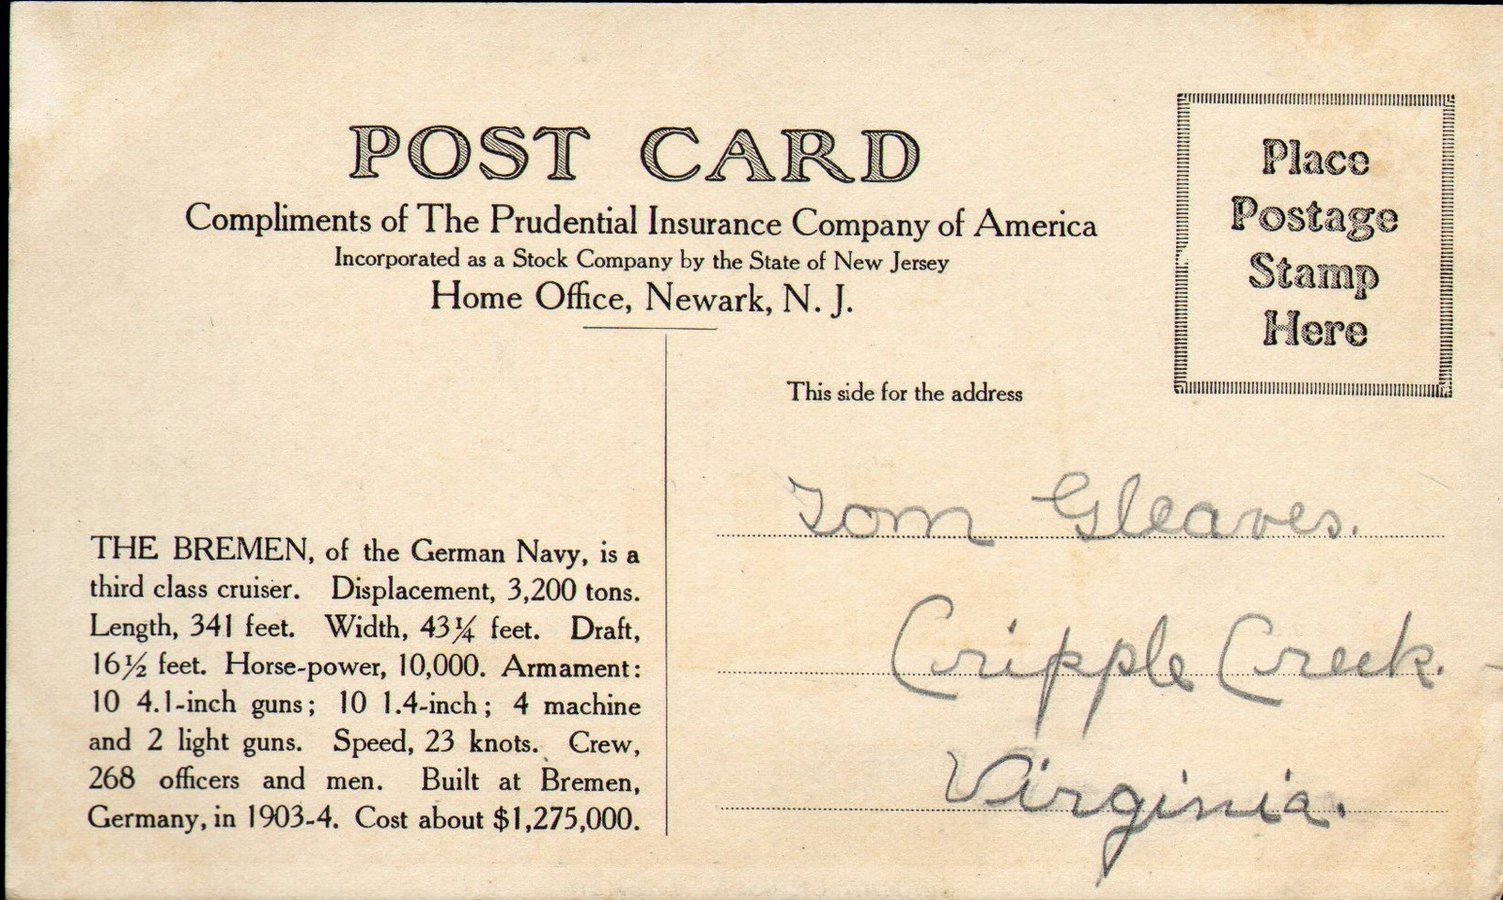 POST CARD
Compliments of The Prudential Insurance Company of America
Incorporated as a Stock Company by the State of New Jersey
Home Office, Newark, N. J.
Place
Postage
Stamp
Here
This side for the address
THE BREMEN, of the German Navy, is a
third class cruiser. Displacement, 3,200 tons.
Length, 341 feet. Width, 43¼ feet. Draft,
16½ feet. Horse-power, 10,000. Armament:
10 4.1-inch guns; 10 1.4-inch; 4 machine
and 2 light guns. Speed, 23 knots. Crew,
268 officers and men. Built at Bremen,
Germany, in 1903-4. Cost about $1,275,000.
Tom Gleaves.
Cripple Creek.
Virginia.